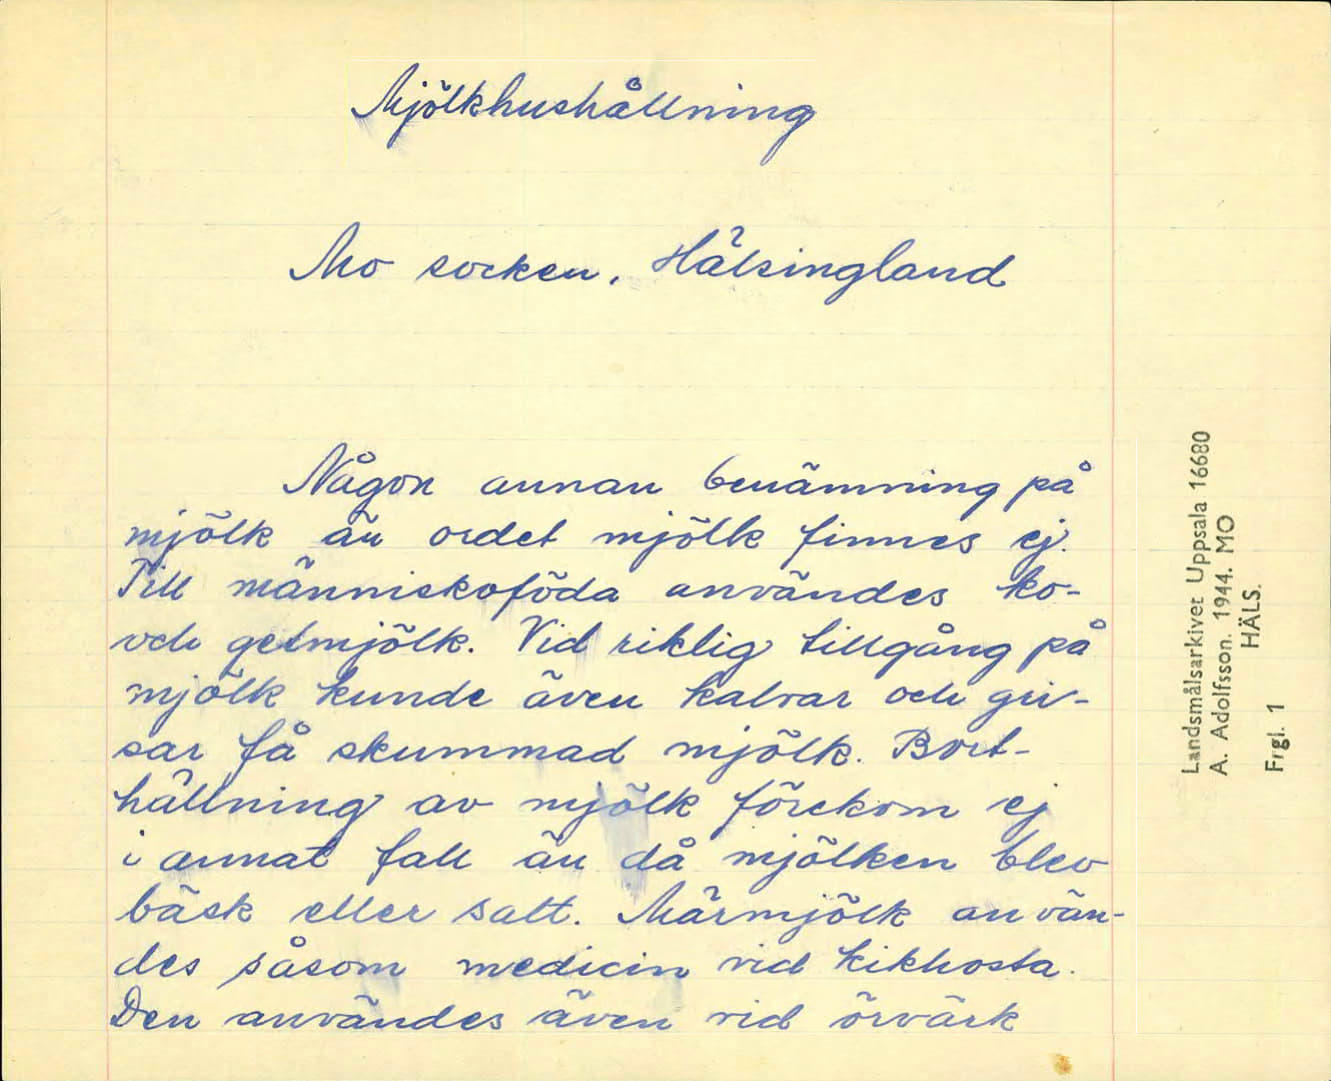 Mjölkhushållning
Mo socken, Hälsingland
Någon annan benämning på
mjölk än ordet mjölk finnes ej.
Till människoföda användes ko-
och getmjölk. Vid riklig tillgång på
mjölk kunde även kalvar och gri-
sar få skummad mjölk. Bort-
hällning av mjölk förekom ej
i annat fall än då mjölken blev
bäsk eller salt. Märmjölk använ-
des såsom medicin vid kikhosta.
Den användes även vid örvärk
Landsmålsarkivet Uppsala 16680
A. Adolfsson. 1944. MO
HÄLS.
Frgl. 1